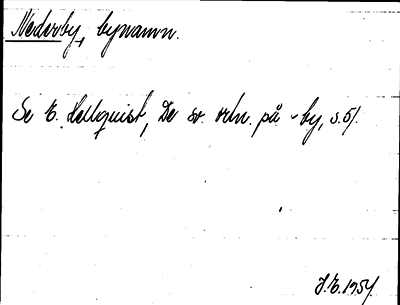 Nederby, bynamn.
Se E. Hellquist, De sv. ortn. på -by, s. 51.